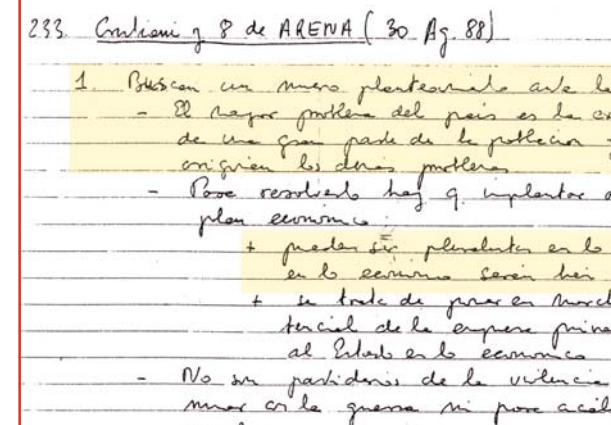 233. Cristiani y 8 de ARENA (30 Ag. 88)
1. Buscan un nuevo planteamiento ante la
- El mayor problema del país es la
de una gran parte de la población
los demás problemas
- Para resolverlo hay q. implantar
plan económico:
+ pueden ser pluralistas en lo
en lo económico serán
+ se trata de poner en march
tencial de la empresa priva
al Estado en lo económico
- No son partidarios de la violencia
la guerra ni para